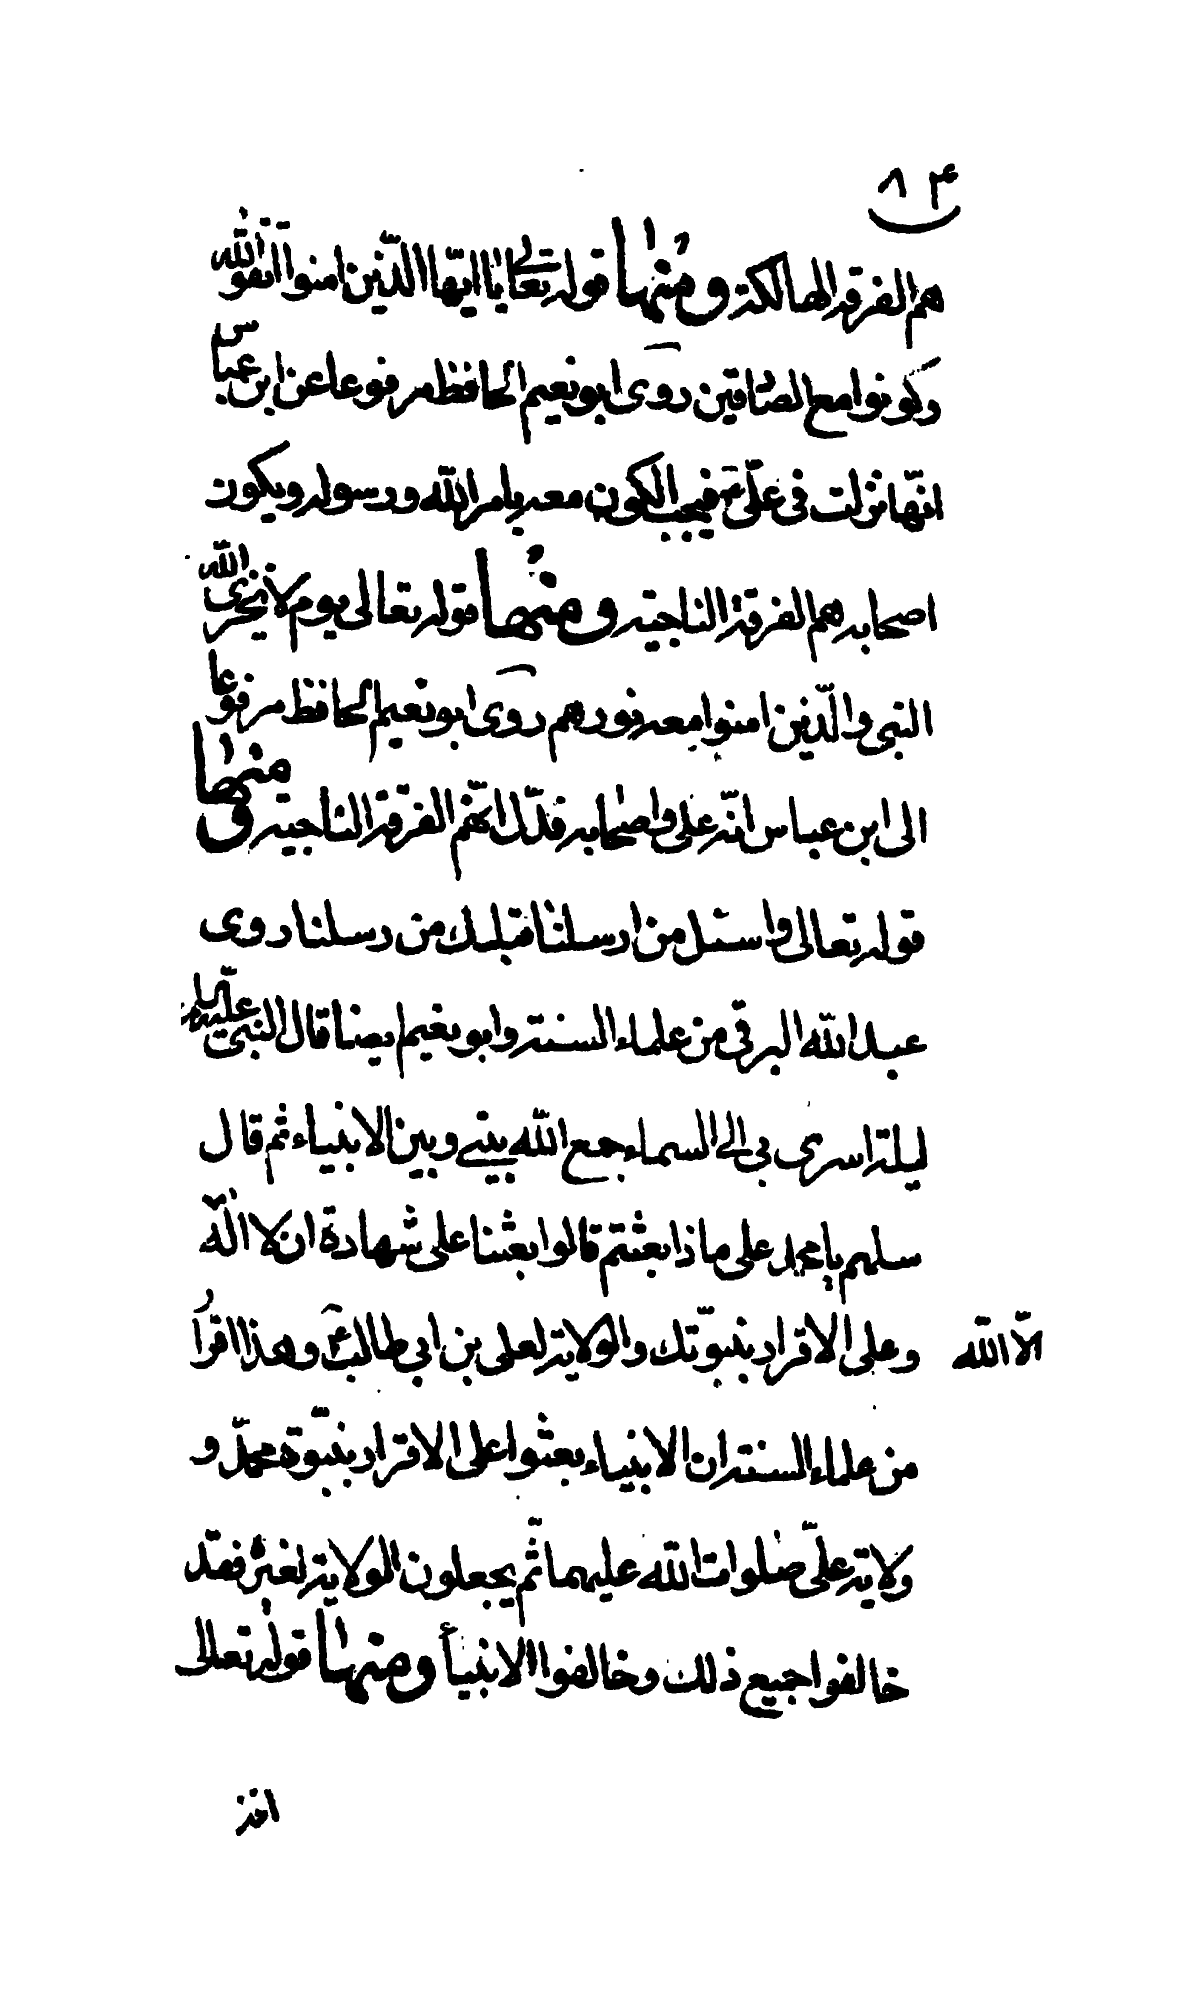 ۸۴
هم الفرقة الهالكة ومنها قوله تعالى يا ايها الذين امنوا اتقوا الله
وكونوا مع الصادقين روى ابو نعيم الحافظ مرفوعا عن ابن عباس
انها نزلت في علي ع فيجب الكون معه بامر الله ورسوله ويكون
اصحابه هم الفرقة الناجية ومنها قوله تعالى يوم لا يخزى الله
النبي والذين امنوا معه نورهم روى ابو نعيم الحافظ مرفوعا
الى ابن عباس انه على واصحابه فدل انهم الفرقة الناجية ومنها
قوله تعالى واسئل من ارسلنا قبلك من رسلنا روى
عبد الله البرقي من علماء السنة وابو نعيم ايضا قال النبي
ليلة اسرى بي الى السماء جمع الله بيني وبين الانبياء ثم قال
سلهم يا محمد على ماذا بعثتم قالوا بعثنا على شهادة ان لا اله
الا الله وعلى الاقرار بنبوتك والولاية لعلى بن ابي طالب ع وهذا اقرار
من علماء السنة ان الانبياء بعثوا على الاقرار بنبوة محمد و
ولاية على صلوات الله عليهما ثم يجعلون الولاية لغيره فقد
خالفوا جميع ذلك وخالفوا الانبياء ومنها قوله تعالى